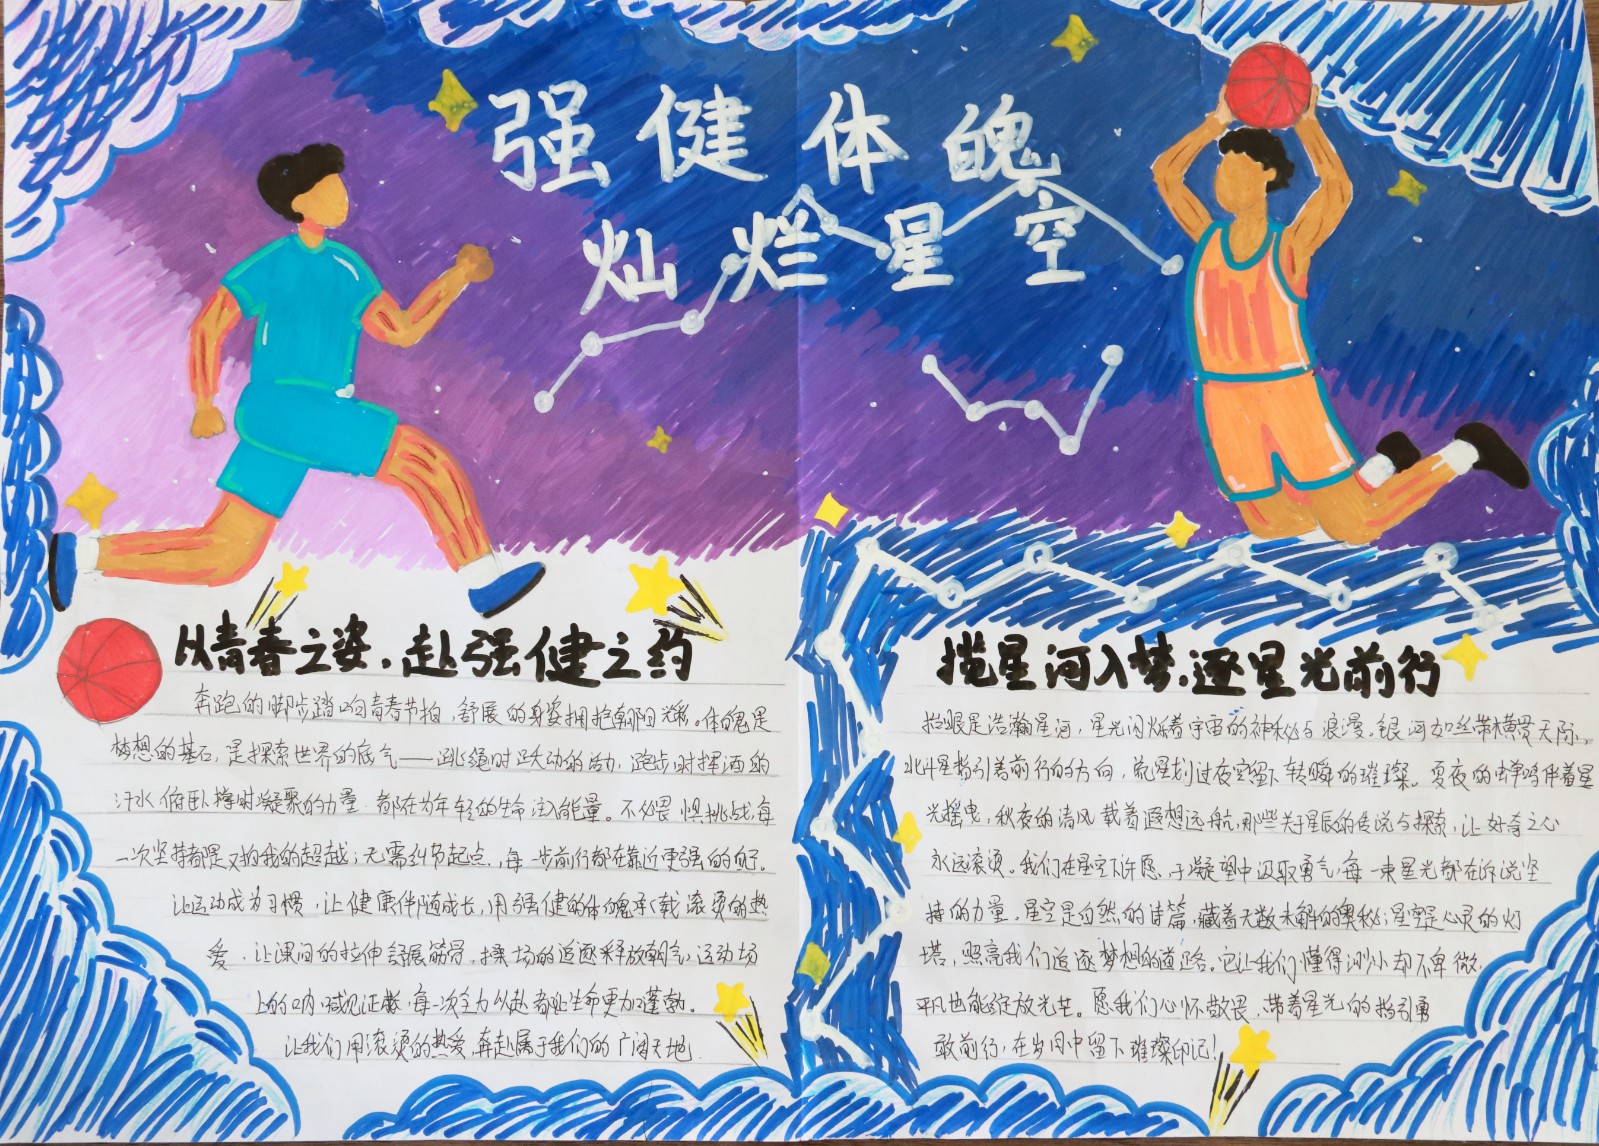 强健体魄
灿烂星空
从青春之姿，赴强健之约
奔跑的脚步踏响青春节拍，舒展的身姿拥抱朝阳光彩。体魄是
梦想的基石，是探索世界的底气——跳绳时跃动的活力，跑步时挥洒的
汗水，俯卧撑时凝聚的力量，都在为年轻的生命注入能量。不必畏惧挑战，每
一次坚持都是对自我的超越；无需纠结起点，每一步前行都在靠近更强的自己。
让运动成为习惯，让健康伴随成长，用强健的体魄承载滚烫的热
爱，让课间的拉伸舒展筋骨，操场的追逐释放朝气，运动场
上的呐喊见证拼搏，每一次全力以赴都让生命更加蓬勃。
让我们用滚烫的热爱，奔赴属于我们的广阔天地
揽星河入梦，逐星光前行
抬眼是浩瀚星河，星光闪烁着宇宙的神秘与浪漫。银河如丝带横贯天际，
北斗星指引着前行的方向，流星划过夜空留下转瞬的璀璨。夏夜的虫鸣伴着星
光摇曳，秋夜的清风载着遐想远航，那些关于星辰的传说与探索，让好奇之心
永远滚烫。我们在星空下许愿，于凝望中汲取勇气，每一束星光都在诉说坚
持的力量，星空是自然的诗篇，藏着无数未解的奥秘；星空是心灵的灯
塔，照亮我们追逐梦想的道路。它让我们懂得渺小却不卑微，
平凡也能绽放光芒。愿我们心怀敬畏，带着星光的指引勇
敢前行，在岁月中留下璀璨印记！